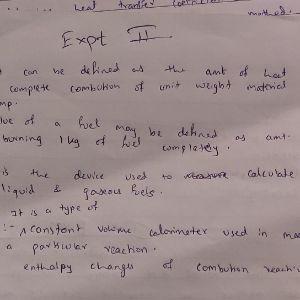 heat transfer
method.
Expt II
can be defined as the amt of heat
complete combution of unit weight material
mp.
lue of a fuel may be defined as amt.
burning 1 kg of fuel completely.
is the device used to measure calculate
liquid & gaseous fuels.
It is a type of
:- A constant volume calorimeter used in mea
a particular reaction.
enthalpy changes of combution reacti